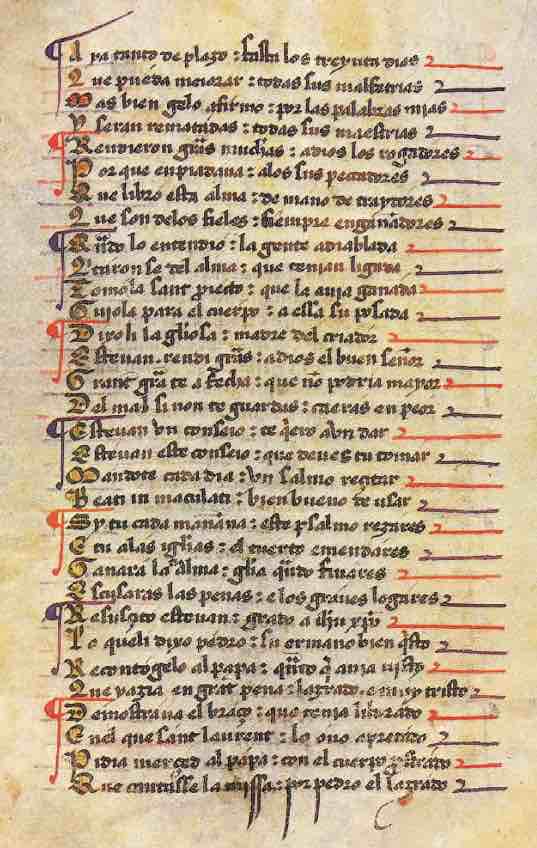 A ya tanto de plazo : fasta los treynta dias
Que pueda meiorar : todas sus malfetrias
Mas bien gelo afirmo : por las palabras mias
Y seran rematadas : todas sus maestrias
Rendieron grãs muchas : a dios los rogadores
Por que enpiadaua : a los sus pecadores
Que libro esta alma : de mano de traydores
Que son de los fieles : siempre engañadores
Qũdo lo entendio : la gente adiablada
Quitaron se del alma : que tenian ligada
Tomola sant proiecto : que la auia ganada
Guiola para el cuerpo : a ella su posada
Dixoli la gliosa : madre del criador
Esteuan rendi grãs : a dios el buen señor
Grant grã te a fecha : que nõ podria mayor
Del mal si non te guardas : caeras en peor
Esteuan vn conseio : te q̃ero avn dar
Esteuan este conseio : que deues tu tomar
Mandote cada dia : vn salmo rezar
Beati in maculati : bien bueno de usar
Sy tu cada mañana : este psalmo rezares
E tu a las iglias : el tuerto emendares
Ganara la alma : glia qũdo finares
Escusaras las penas : e los graues logares
Resuscito esteuan : grado a ihu xpo
Lo queli dixo pedro : su ermano bien q̃sto
Recontogelo al papa : qũto q̃ auia uisto
Que yazia en grat pena : lazrado e muy tristo
Demostraua el braço : que tenia liurado
En el que sant laurent : lo ouo apretado
Pidia merced al papa : con el cuerpo p̃strado
Que cantasse la missa : por pedro el lazrado